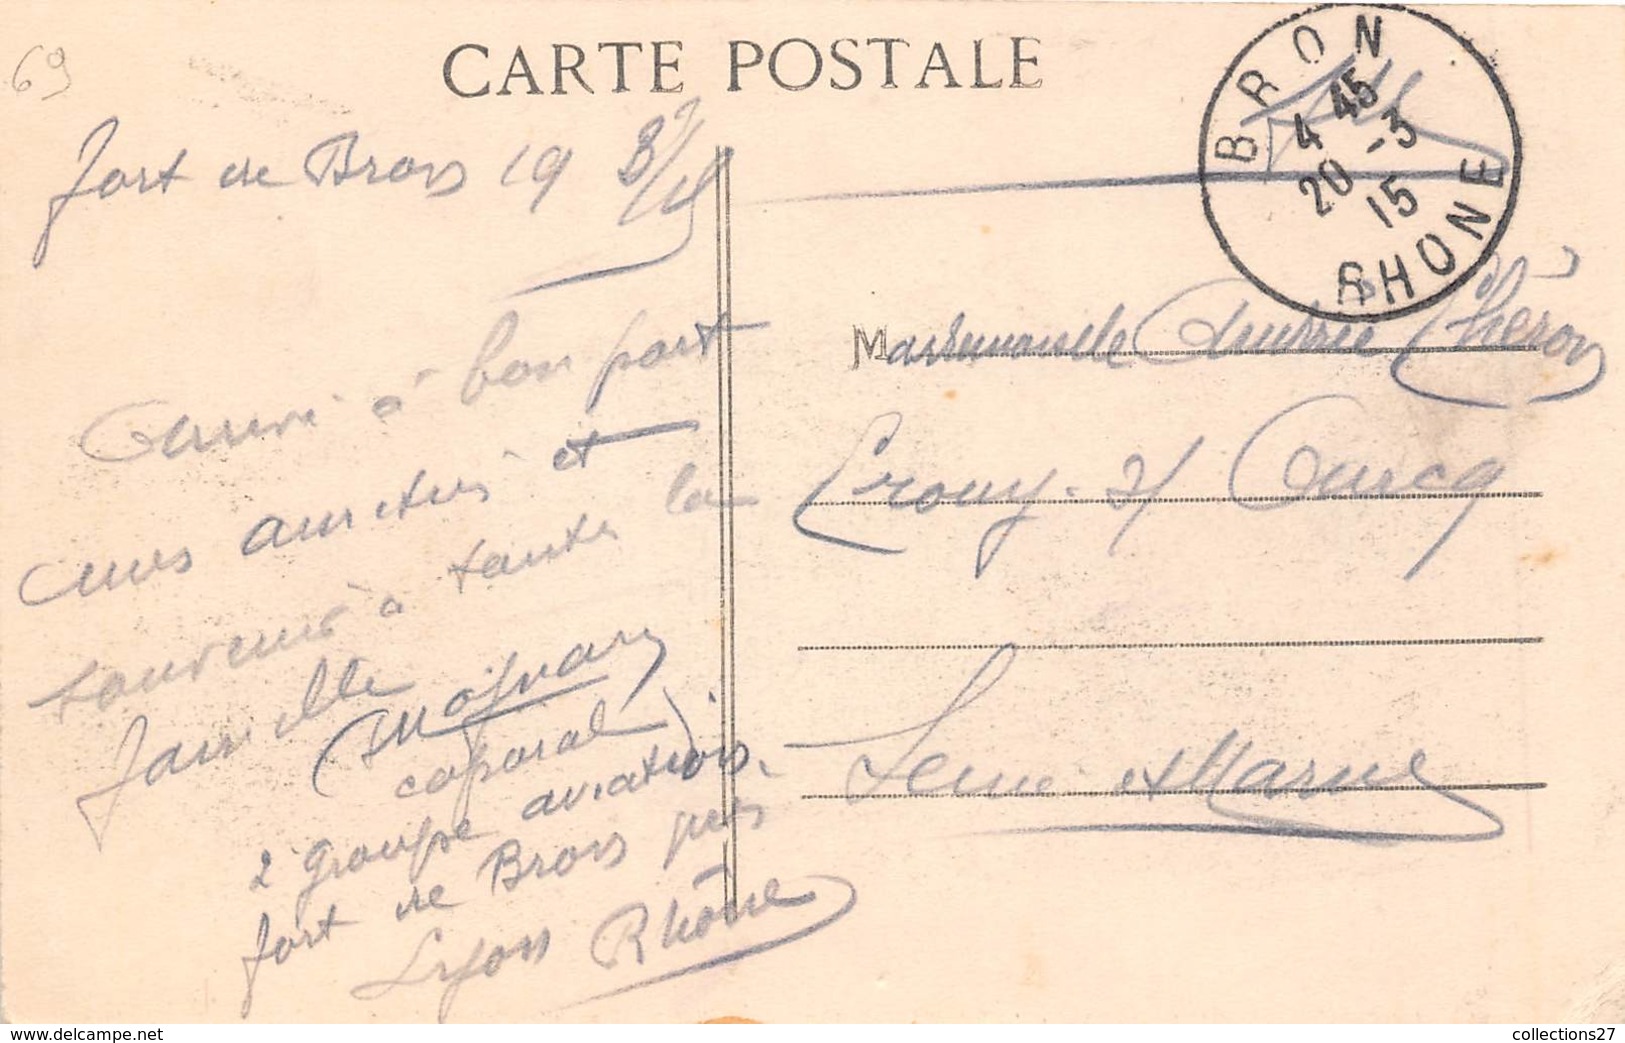 69
CARTE POSTALE
BRON
4 45
20 -3
15
RHONE
fort de Bron 19 3/15
Arrivé à bon port
mes amitiés et
souvenir à toute la
famille
caporal
2 groupe aviation
fort de Bron près
Lyon Rhône
Mademoiselle Andrée Chéron
Crouy s/ Ourcq
Seine et Marne
collections27